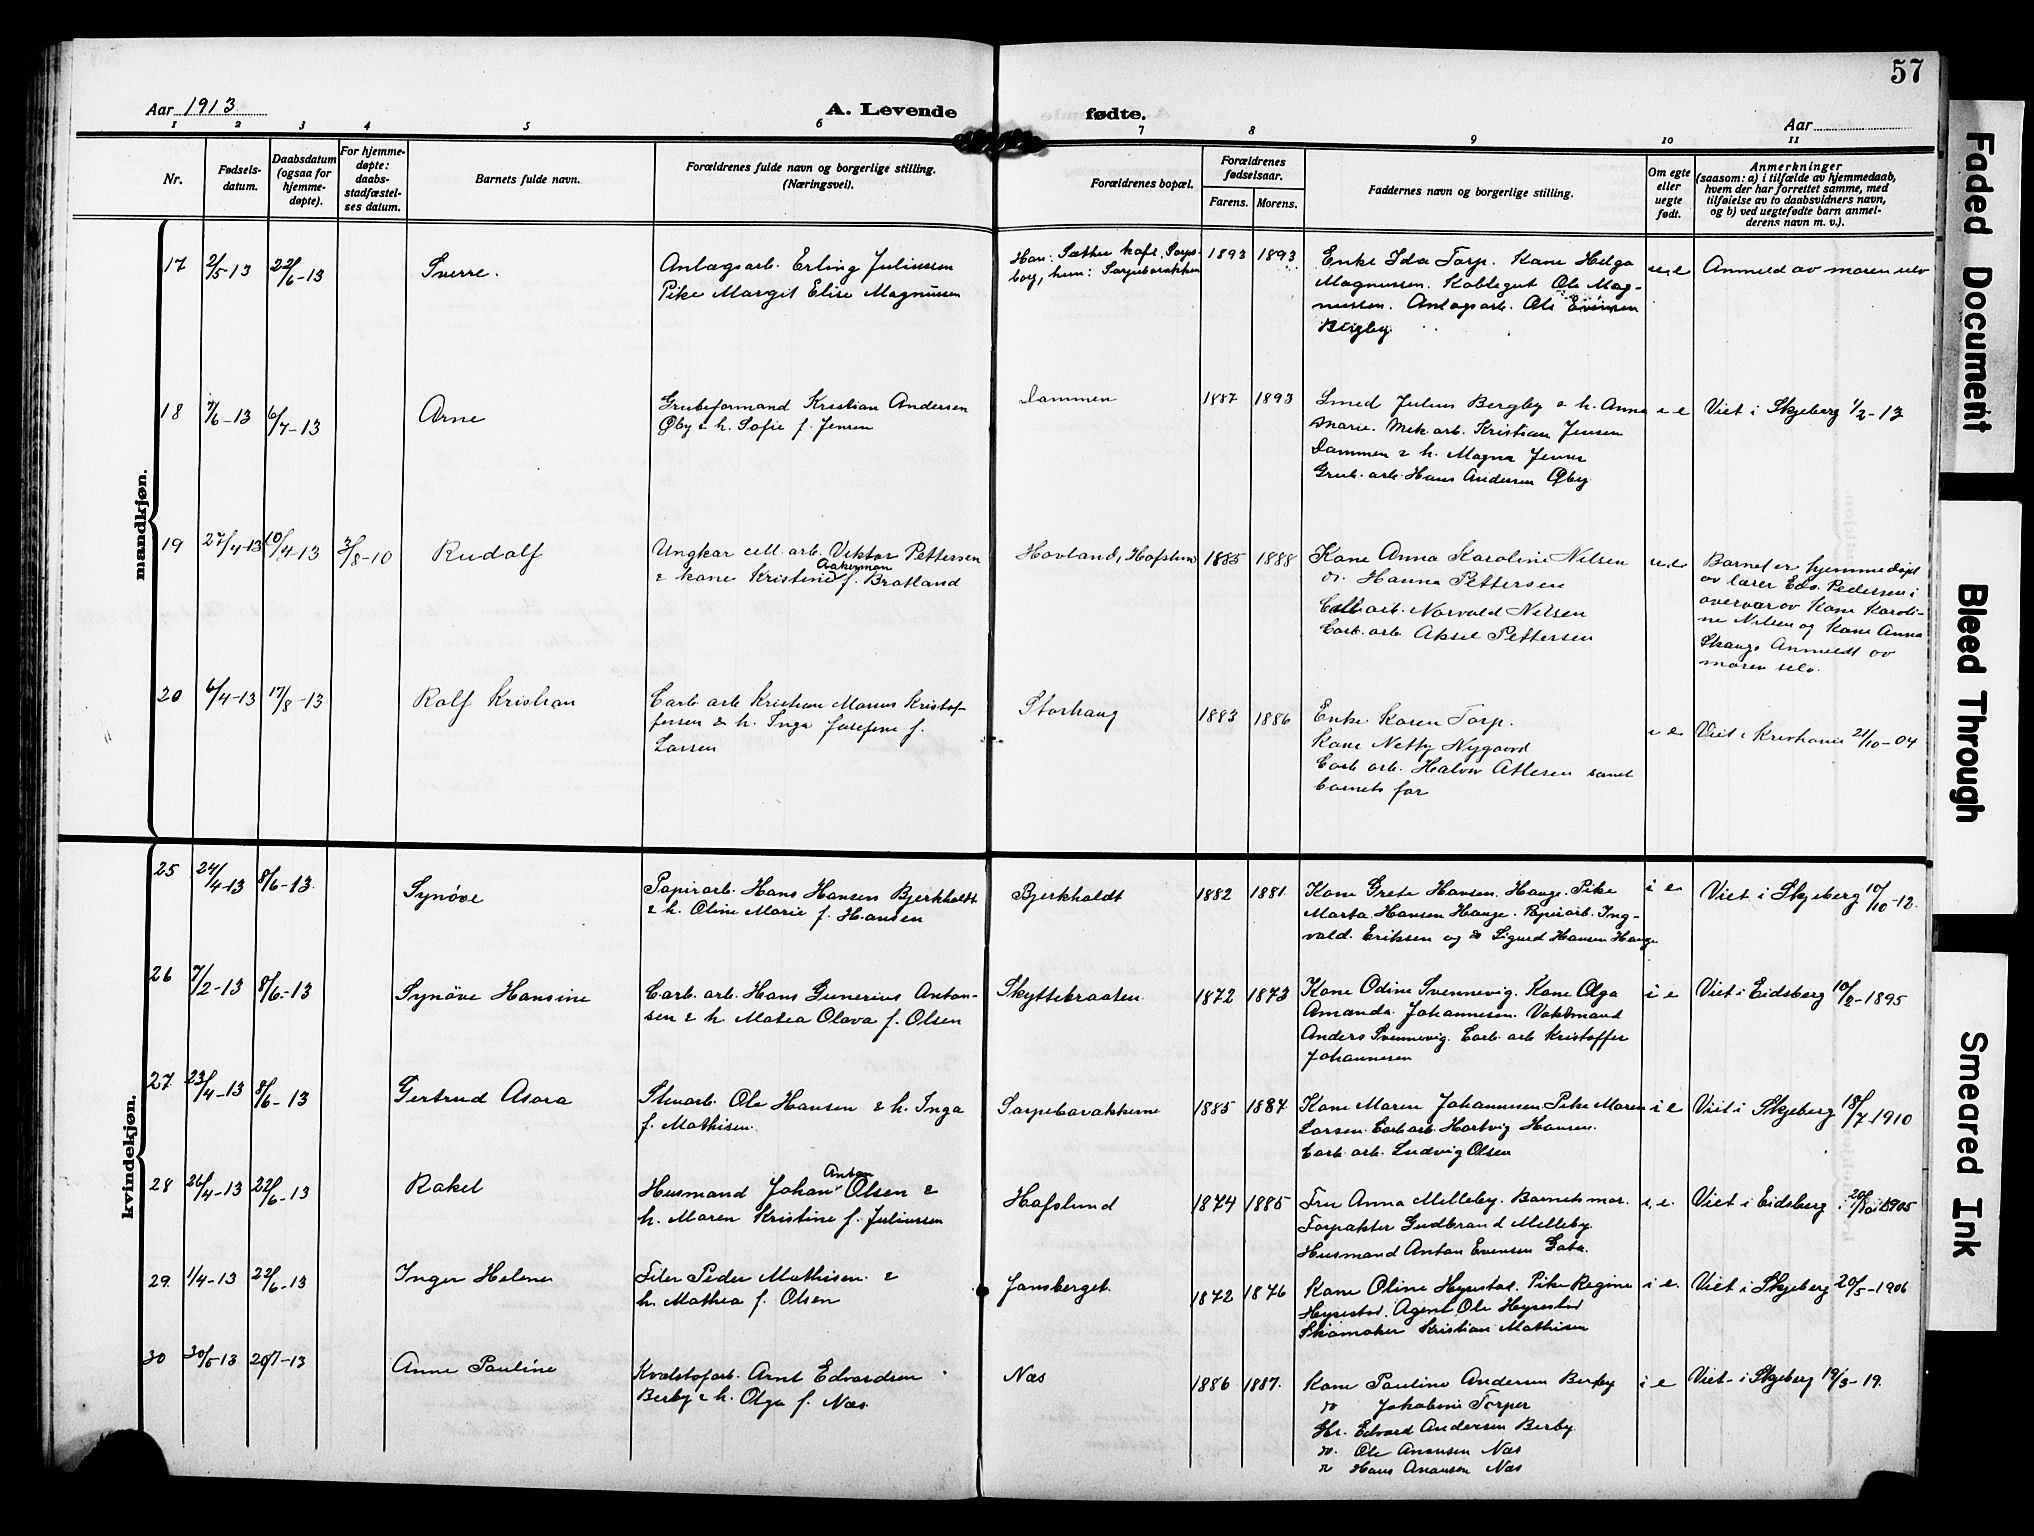 57
Aar 1913
A. Levende
fødte.
Aar
1 2 3 4 5 6 7 8 9 10 11
Nr.
Fødsels-
datum.
Daabsdatum
(ogsaa for
hjemme-
døpte).
For hjemme-
døpte:
daabs-
stadfæstel-
ses datum.
Barnets fulde navn.
Forældrenes fulde navn og borgerlige stilling.
(Næringsvei).
Forældrenes bopæl.
Forældrenes
fødselsaar.
Farens. Morens.
Faddernes navn og borgerlige stilling.
Om egte
eller
uegte
født.
Anmerkninger
(saasom: a) i tilfælde av hjemmedaab,
hvem der har forrettet samme, med
tilføielse av to daabsvidners navn,
og b) ved uegtefødte barn anmel-
derens navn m. v.).
mandkjøn.
17 2/5-13 22/6-13 Sverre.
Anlægsarb. Erling Juliussen
Pike Margit Elise Magnussen
Han: Sæther kafe, Sarps-
borg, hun: Sarpebarakken
1893 1893
Enke Ida Torp. Kone Helga
Magnussen. Kobbegut Ole Mag-
nussen. Anlægsarb. Ole Evensen
Bergby
u e
Anmeld av moren selv
18 7/6-13 6/7-13 Arne
Grubeformand Kristian Andersen
Øby & h. Sofie f. Jensen
Dammen
1887 1893
Smed Julius Bergby & h. Anna
Marie. Mek. arb. Kristian Jensen
Dammen & h. Magna Jensen
Grub. arb. Hans Andersen Øby
i e
Viet i Skjeberg 1/2-13
19 27/4-13 10/4-13 3/8-10 Rudolf
Ungkar cell. arb. Viktor Pettersen
& kone Kristine Aakerman f. Bratland
Hovland, Hafslund
1885 1888
Kone Anna Karoline Nilsen
do. Hanna Pettersen
Cell. arb. Norvald Nilsen
Carb. arb. Aksel Pettersen
u.e
Barnet er hjemmedøpt
av lærer Edv. Pedersen i
overvær av Kone Karoli-
ne Nilsen og Kone Anna
Skauge Anmeldt av
moren selv.
20 6/4-13 17/8-13 Rolf Kristian
Carb. arb. Kristian Marius Kristof-
fersen & h. Inga Josefine f.
Larsen
Storhaug
1883 1886
Enke Karen Torp.
Kone Netty Nygaard
Carb. arb. Halvor Atlesen samt
barnets far
i e
Viet i Kristiania 21/10-04
kvindekjøn.
25 24/4-13 8/6-13. Synøve
Papirarb. Hans Hansen Bjerkholdt
& h. Oline Marie f. Hansen
Bjerkholdt
1882 1881
Kone Grete Hansen Hauge. Pike
Marta Hansen Hauge. Papirarb. Ing-
vald Eriksen og do Sigurd Hansen Hauge
i e
Viet i Skjeberg 10/10-12.
26 7/2-13 8/6-13 Synøve Hansine
Carb. arb. Hans Gunerius Anton-
sen & h. Matea Olava f. Olsen
Skyttebraaten
1872 1873
Kone Odine Svennevig. Kone Olga
Amanda Johannesen. Vaktmand
Anders Svennevig. Carb. arb Kristoffer
Johannesen
i e
Viet i Eidsberg 10/2-1895
27 23/4-13 8/6-13 Gertrud Asora
Stenarb. Ole Hansen & h. Inga
f. Mathisen.
Sarpebarakkerne
1885 1887
Kone Maren Johannesen. Pike Maren
Larsen. Carb arb. Hartvig Hansen.
Carb. arb. Ludvig Olsen
i e
Viet i Skjeberg 18/7-1910
28 26/4-13 22/6-13 Rakel
Husmand Johan Anton Olsen &
h. Maren Kristine f. Juliussen
Hafslund
1874 1885
Fru Anna Melleby. Barnets mor.
Forpakter Gudbrand Melleby.
Husmand Anton Evensen Gata.
i e.
Viet i Eidsberg 20/10 1905
29 1/4-13 22/6-13 Inger Helene
Filer Peder Mathisen &
h. Mathea f. Olsen
Jonsberget.
1872 1876
Kone Oline Hyrestad. Pike Regine
Hyrestad. Agent Ole Hyrestad
Skomaker Kristian Mathisen
i e.
Viet i Skjeberg 20/5-1906
30 30/5-13 20/7-13 Anne Pauline
Kvælstofarb. Arnt Edvardsen
Berby & h. Olga f. Næs
Næs
1886 1887.
Kone Pauline Andersen Berby
do Jakobine Torper
Hr. Edvard Andersen Berby
do. Ole Anansen Næs
do Hans Anansen Næs
i e
Viet i Skjeberg 19/3-19.
Faded Document
Bleed Through
Smeared Ink